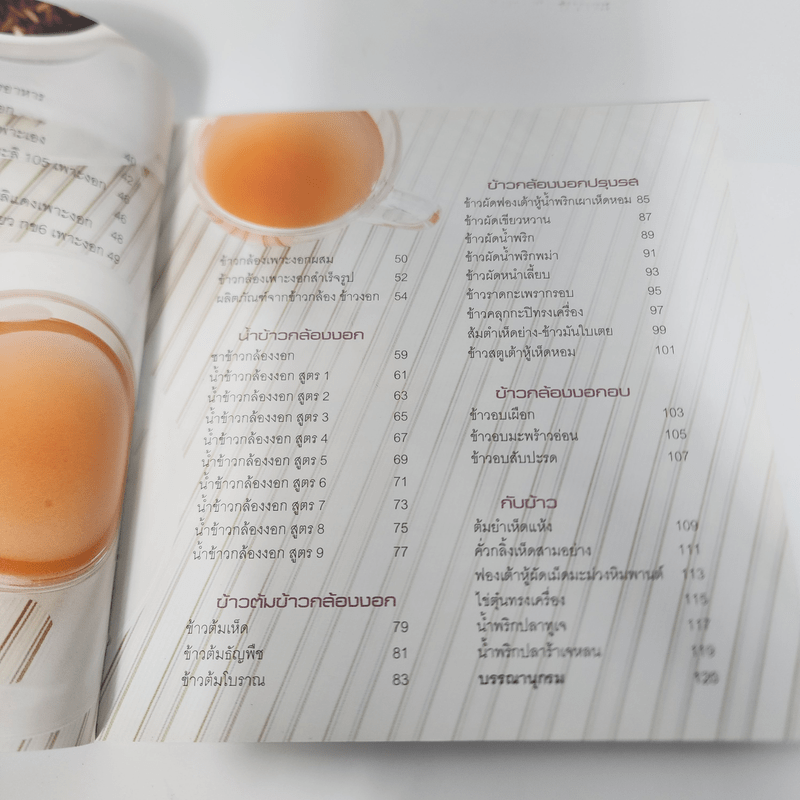 เพาะเอง
ะลิ 105 เพาะงอก 46
ลิแดงเพาะงอก 48
กข6 เพาะงอก 49
ข้าวกล้องเพาะงอกผสม 50
ข้าวกล้องเพาะงอกสำเร็จรูป 52
ผลิตภัณฑ์จากข้าวกล้อง ข้าวงอก 54
น้ำข้าวกล้องงอก
ชาข้าวกล้องงอก 59
น้ำข้าวกล้องงอก สูตร 1 61
น้ำข้าวกล้องงอก สูตร 2 63
น้ำข้าวกล้องงอก สูตร 3 65
น้ำข้าวกล้องงอก สูตร 4 67
น้ำข้าวกล้องงอก สูตร 5 69
น้ำข้าวกล้องงอก สูตร 6 71
น้ำข้าวกล้องงอก สูตร 7 73
น้ำข้าวกล้องงอก สูตร 8 75
น้ำข้าวกล้องงอก สูตร 9 77
ข้าวต้มข้าวกล้องงอก
ข้าวต้มเห็ด 79
ข้าวต้มธัญพืช 81
ข้าวต้มโบราณ 83
ข้าวกล้องงอกปรุงรส
ข้าวผัดฟองเต้าหู้น้ำพริกเผาเห็ดหอม 85
ข้าวผัดเขียวหวาน 87
ข้าวผัดน้ำพริก 89
ข้าวผัดน้ำพริกพม่า 91
ข้าวผัดหนำเลี้ยบ 93
ข้าวราดกะเพรากรอบ 95
ข้าวคลุกกะปิทรงเครื่อง 97
ส้มตำเห็ดย่าง-ข้าวมันใบเตย 99
ข้าวสตูเต้าหู้เห็ดหอม 101
ข้าวกล้องงอกอบ
ข้าวอบเผือก 103
ข้าวอบมะพร้าวอ่อน 105
ข้าวอบสับปะรด 107
กับข้าว
ต้มยำเห็ดแห้ง 109
คั่วกลิ้งเห็ดสามอย่าง 111
ฟองเต้าหู้ผัดเม็ดมะม่วงหิมพานต์ 113
ไข่ตุ๋นทรงเครื่อง 115
น้ำพริกปลาทูเจ 117
น้ำพริกปลาร้าเจหลน 119
บรรณานุกรม 120